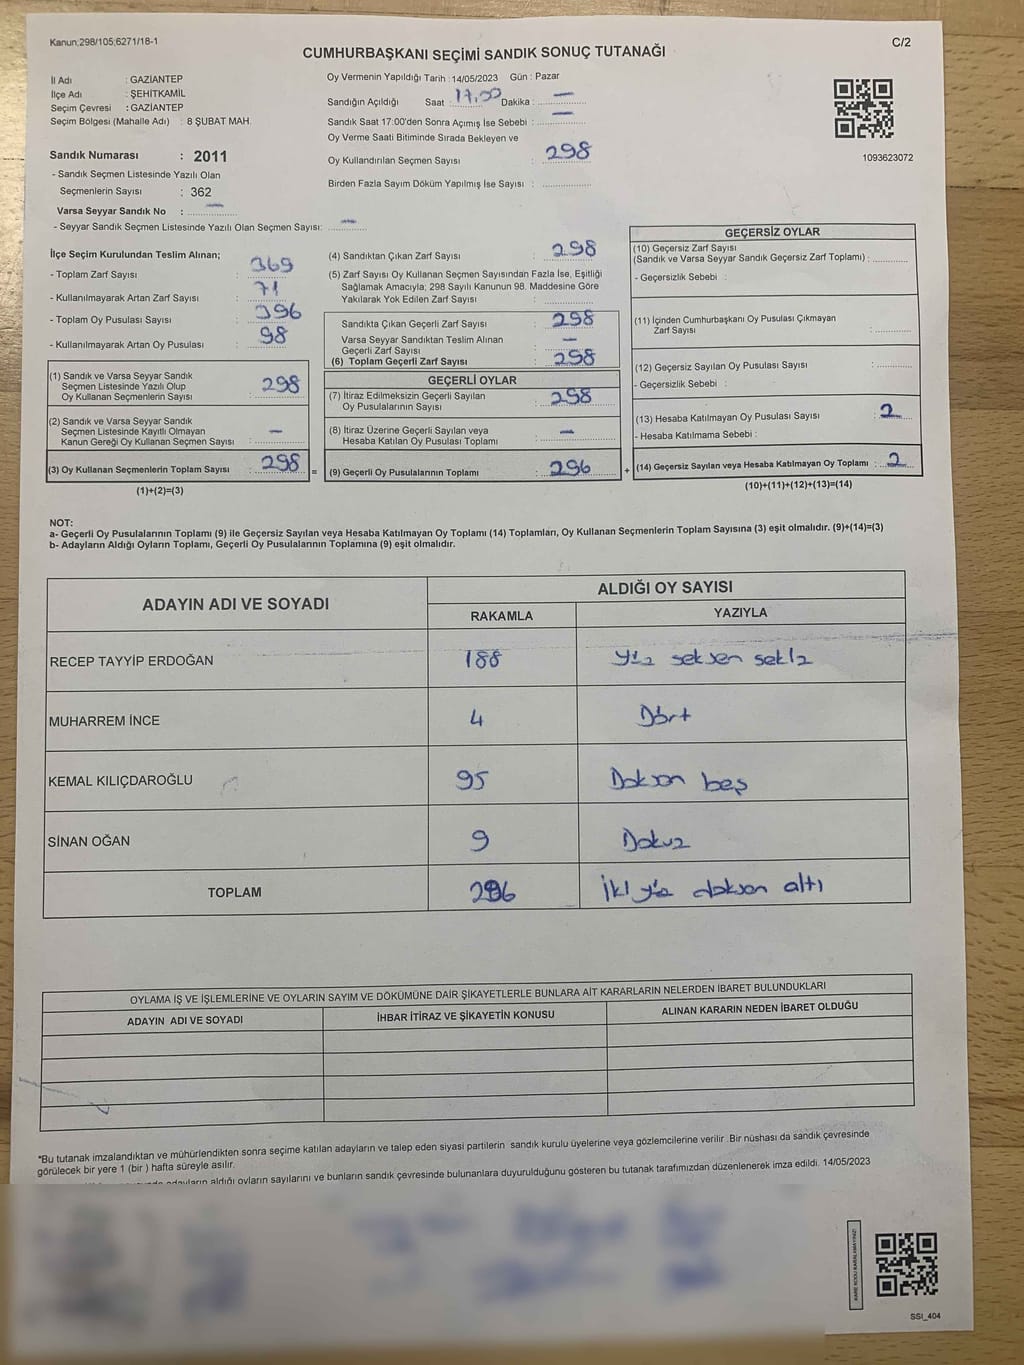 Kanun:298/105;6271/18-1
C/2
CUMHURBAŞKANI SEÇİMİ SANDIK SONUÇ TUTANAĞI
İl Adı : GAZİANTEP
İlçe Adı : ŞEHİTKAMİL
Seçim Çevresi : GAZİANTEP
Seçim Bölgesi (Mahalle Adı) : 8 ŞUBAT MAH.
Sandık Numarası : 2011
- Sandık Seçmen Listesinde Yazılı Olan
Seçmenlerin Sayısı : 362
Varsa Seyyar Sandık No : —
- Seyyar Sandık Seçmen Listesinde Yazılı Olan Seçmen Sayısı: —
Oy Vermenin Yapıldığı Tarih : 14/05/2023 Gün : Pazar
Sandığın Açıldığı Saat : 17,00 Dakika : —
Sandık Saat 17:00'den Sonra Açımış İse Sebebi : —
Oy Verme Saati Bitiminde Sırada Bekleyen ve
Oy Kullandırılan Seçmen Sayısı : 298
Birden Fazla Sayım Döküm Yapılmış İse Sayısı :
1093623072
İlçe Seçim Kurulundan Teslim Alınan;
- Toplam Zarf Sayısı : 369
- Kullanılmayarak Artan Zarf Sayısı : 71
- Toplam Oy Pusulası Sayısı : 396
- Kullanılmayarak Artan Oy Pusulası : 98
(1) Sandık ve Varsa Seyyar Sandık
Seçmen Listesinde Yazılı Olup
Oy Kullanan Seçmenlerin Sayısı : 298
(2) Sandık ve Varsa Seyyar Sandık
Seçmen Listesinde Kayıtlı Olmayan
Kanun Gereği Oy Kullanan Seçmen Sayısı : —
(3) Oy Kullanan Seçmenlerin Toplam Sayısı : 298
(1)+(2)=(3)
=
(4) Sandıktan Çıkan Zarf Sayısı : 298
(5) Zarf Sayısı Oy Kullanan Seçmen Sayısından Fazla İse, Eşitliği
Sağlamak Amacıyla; 298 Sayılı Kanunun 98. Maddesine Göre
Yakılarak Yok Edilen Zarf Sayısı :
Sandıkta Çıkan Geçerli Zarf Sayısı : 298
Varsa Seyyar Sandıktan Teslim Alınan
Geçerli Zarf Sayısı : —
(6) Toplam Geçerli Zarf Sayısı : 298
GEÇERLİ OYLAR
(7) İtiraz Edilmeksizin Geçerli Sayılan
Oy Pusulalarının Sayısı : 298
(8) İtiraz Üzerine Geçerli Sayılan veya
Hesaba Katılan Oy Pusulası Toplamı : —
(9) Geçerli Oy Pusulalarının Toplamı : 296
+
GEÇERSİZ OYLAR
(10) Geçersiz Zarf Sayısı
(Sandık ve Varsa Seyyar Sandık Geçersiz Zarf Toplamı) :
- Geçersizlik Sebebi :
(11) İçinden Cumhurbaşkanı Oy Pusulası Çıkmayan
Zarf Sayısı :
(12) Geçersiz Sayılan Oy Pusulası Sayısı :
- Geçersizlik Sebebi :
(13) Hesaba Katılmayan Oy Pusulası Sayısı : 2
- Hesaba Katılmama Sebebi :
(14) Geçersiz Sayılan veya Hesaba Katılmayan Oy Toplamı : 2
(10)+(11)+(12)+(13)=(14)
NOT:
a- Geçerli Oy Pusulalarının Toplamı (9) ile Geçersiz Sayılan veya Hesaba Katılmayan Oy Toplamı (14) Toplamları, Oy Kullanan Seçmenlerin Toplam Sayısına (3) eşit olmalıdır. (9)+(14)=(3)
b- Adayların Aldığı Oyların Toplamı, Geçerli Oy Pusulalarının Toplamına (9) eşit olmalıdır.
ADAYIN ADI VE SOYADI
ALDIĞI OY SAYISI
RAKAMLA YAZIYLA
RECEP TAYYİP ERDOĞAN 188 Yüz seksen sekiz
MUHARREM İNCE 4 Dört
KEMAL KILIÇDAROĞLU 95 Doksan beş
SİNAN OĞAN 9 Dokuz
TOPLAM 296 İki yüz doksan altı
OYLAMA İŞ VE İŞLEMLERİNE VE OYLARIN SAYIM VE DÖKÜMÜNE DAİR ŞİKAYETLERLE BUNLARA AİT KARARLARIN NELERDEN İBARET BULUNDUKLARI
ADAYIN ADI VE SOYADI İHBAR İTİRAZ VE ŞİKAYETİN KONUSU ALINAN KARARIN NEDEN İBARET OLDUĞU
*Bu tutanak imzalandıktan ve mühürlendikten sonra seçime katılan adayların ve talep eden siyasi partilerin sandık kurulu üyelerine veya gözlemcilerine verilir. Bir nüshası da sandık çevresinde
görülecek bir yere 1 (bir ) hafta süreyle asılır.
adayların aldığı oyların sayılarını ve bunların sandık çevresinde bulunanlara duyurulduğunu gösteren bu tutanak tarafımızdan düzenlenerek imza edildi. 14/05/2023
SSI_404